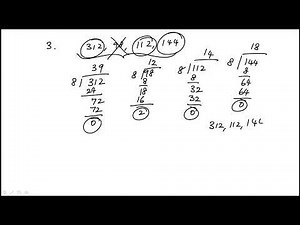 3. 312, 98, 112, 144
39 12 14 18
8 312 8 98 8 112 8 144
24 8 8 8
72 18 32 64
72 16 32 64
0 2 0 0
312, 112, 144